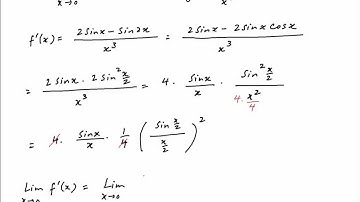 x→0 x→0
f'(x) = (2 sin x - sin 2x) / x³ = (2 sin x - 2 sin x cos x) / x³
= (2 sin x · 2 sin² x/2) / x³ = 4 · sin x / x · (sin² x/2) / (4 · x²/4)
= 4 · sin x / x · 1/4 ( (sin x/2) / (x/2) )²
Lim x→0 f'(x) = Lim x→0